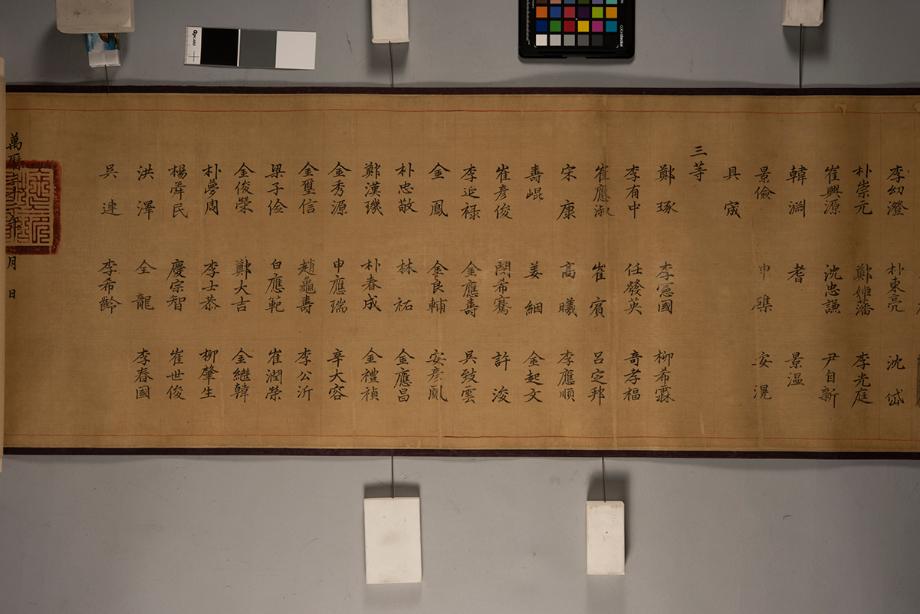 李幼澄 朴東亮 沈岱
朴崇元 鄭姬藩 李光庭
崔興源 沈忠謙 尹自新
韓淵 耆 景溫
景儉 申磼 安滉
具宬
三等
鄭琢 李憲國 柳希霖
李有中 任發英 奇孝福
崔應淑 崔賓 呂定邦
宋康 高曦 李應順
壽崐 姜絪 金起文
崔彦俊 閔希騫 許浚
李延祿 金應壽 吳致雲
金鳳 金良輔 安彦鳳
朴忠敬 林祐 金應昌
鄭漢璣 朴春成 金禮禎
金秀源 申應瑞 辛大容
金璽信 趙龜壽 李公沂
梁子儉 白應範 崔潤榮
金俊榮 鄭大吉 金繼韓
朴夢周 李士恭 柳肇生
楊舜民 慶宗智 崔世俊
洪澤 全龍 李春國
吳連 李希齡
萬曆 月 日